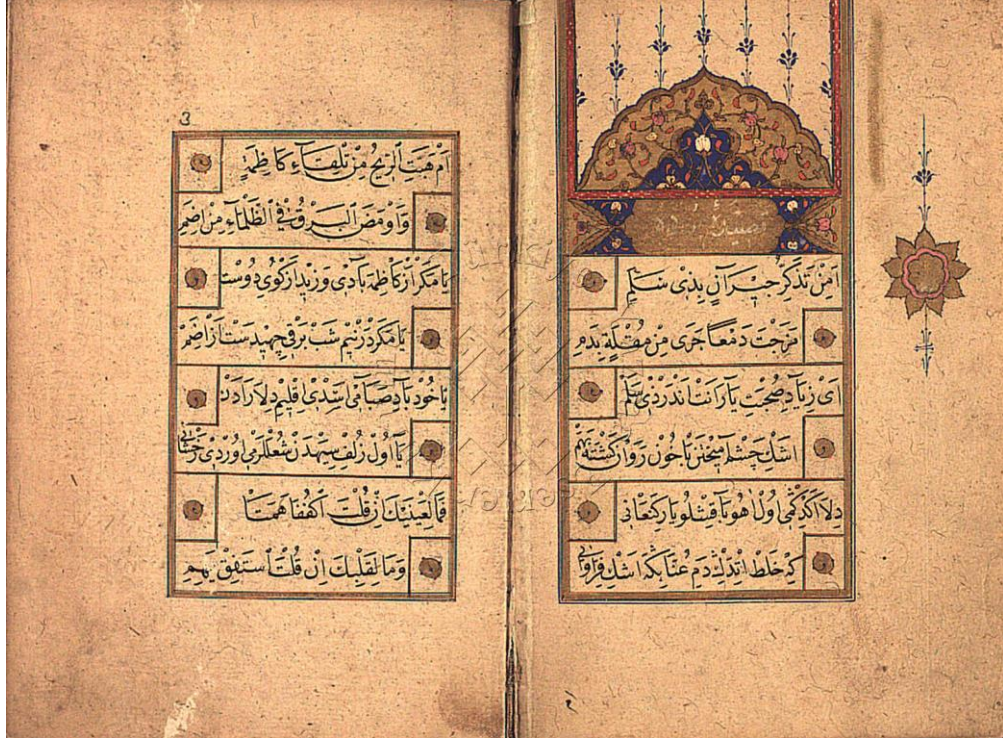 اَمِنْ تَذَكُّرِ جِيرَانٍ بِذِى سَلَمٍ
مَزَجْتَ دَمْعًا جَرَى مِنْ مُقْلَةٍ بِدَمِ
اَىْ زِيَادِ صُحْبَتِ يَارَانَتْ اَنْدَرْ ذِى سَلَمْ
اشك چشم آميختن باخون روان كشته بهم
دلا اكدكمى اول اهو باقشلو يار كنعانى
كه خلط اتدك دم عنابكه اشك فراوانى
3
اَمْ هَبَّتِ الرِّيحُ مِنْ تِلْقَاءِ كَاظِمَةٍ
وَاَوْمَضَ الْبَرْقُ فِي الظَّلْمَاءِ مِنْ اِضَمِ
يا مكر از كاظمه بادى وزيد از كوى دوست
يا مكر در نيم شب برقى جهيدست از اضم
ياخود باد صبامى اسدى اقليم دلارادن
يا اول زلف سيهدن شعله لرمى اوردى رخشانى
فَمَا لِعَيْنَيْكَ اِنْ قُلْتَ اكْفُفَا هَمَتَا
وَمَا لِقَلْبِكَ اِنْ قُلْتَ اسْتَفِقْ يَهِمِ